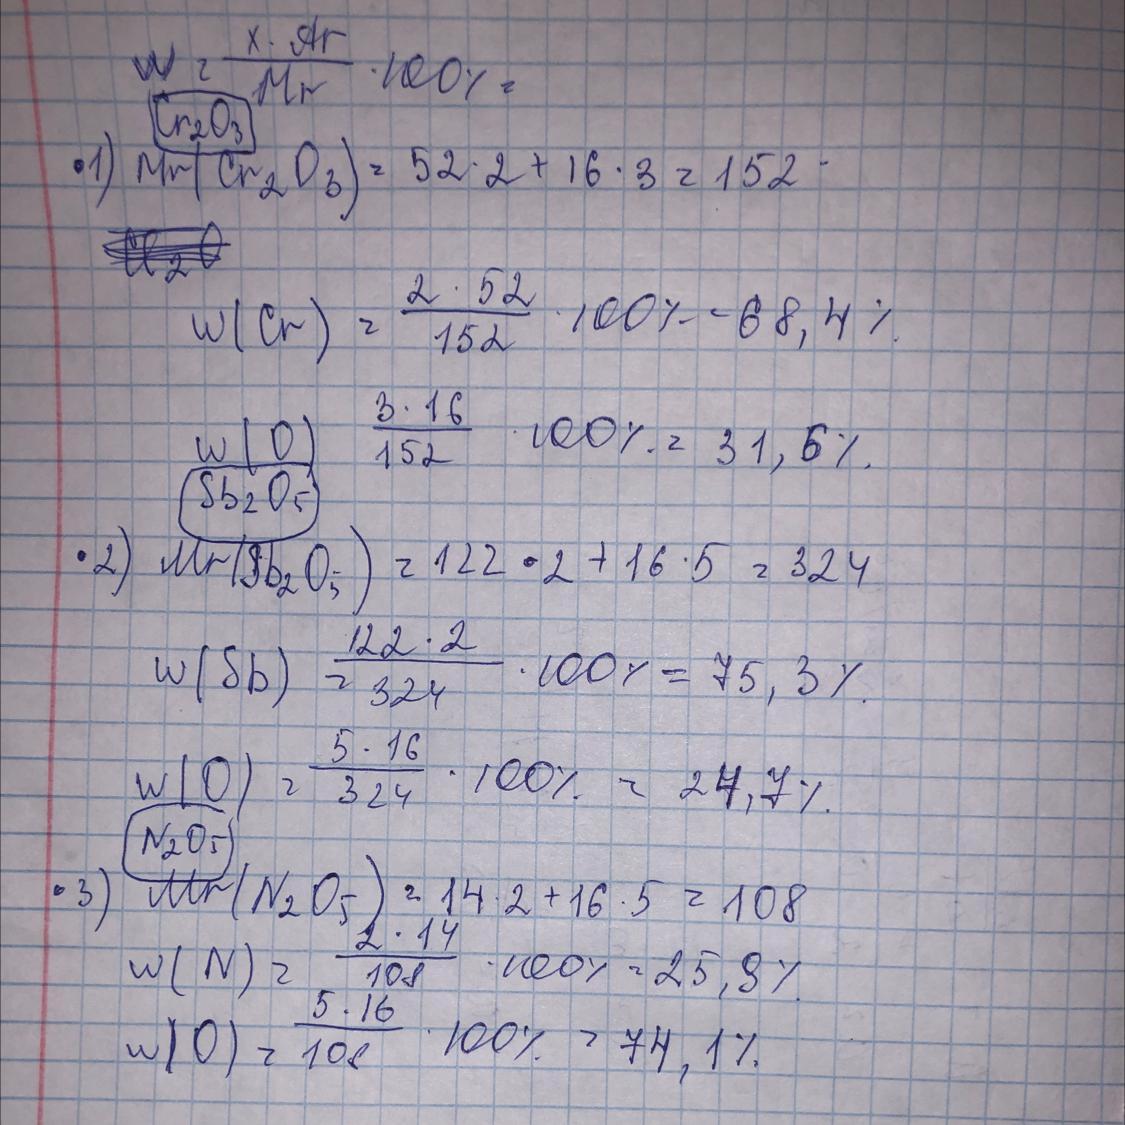 w = x · Ar / Mr · 100% =
Cr₂O₃
•1) Mr(Cr₂O₃) = 52·2 + 16·3 = 152
w(Cr) = 2·52 / 152 · 100% = 68,4%.
w(O) 3·16 / 152 · 100% = 31,6%.
Sb₂O₅
•2) Mr(Sb₂O₅) = 122·2 + 16·5 = 324
w(Sb) = 122·2 / 324 · 100% = 75,3%.
w(O) = 5·16 / 324 · 100% = 24,7%.
N₂O₅
•3) Mr(N₂O₅) = 14·2 + 16·5 = 108
w(N) = 2·14 / 108 · 100% = 25,9%.
w(O) = 5·16 / 108 · 100% = 74,1%.